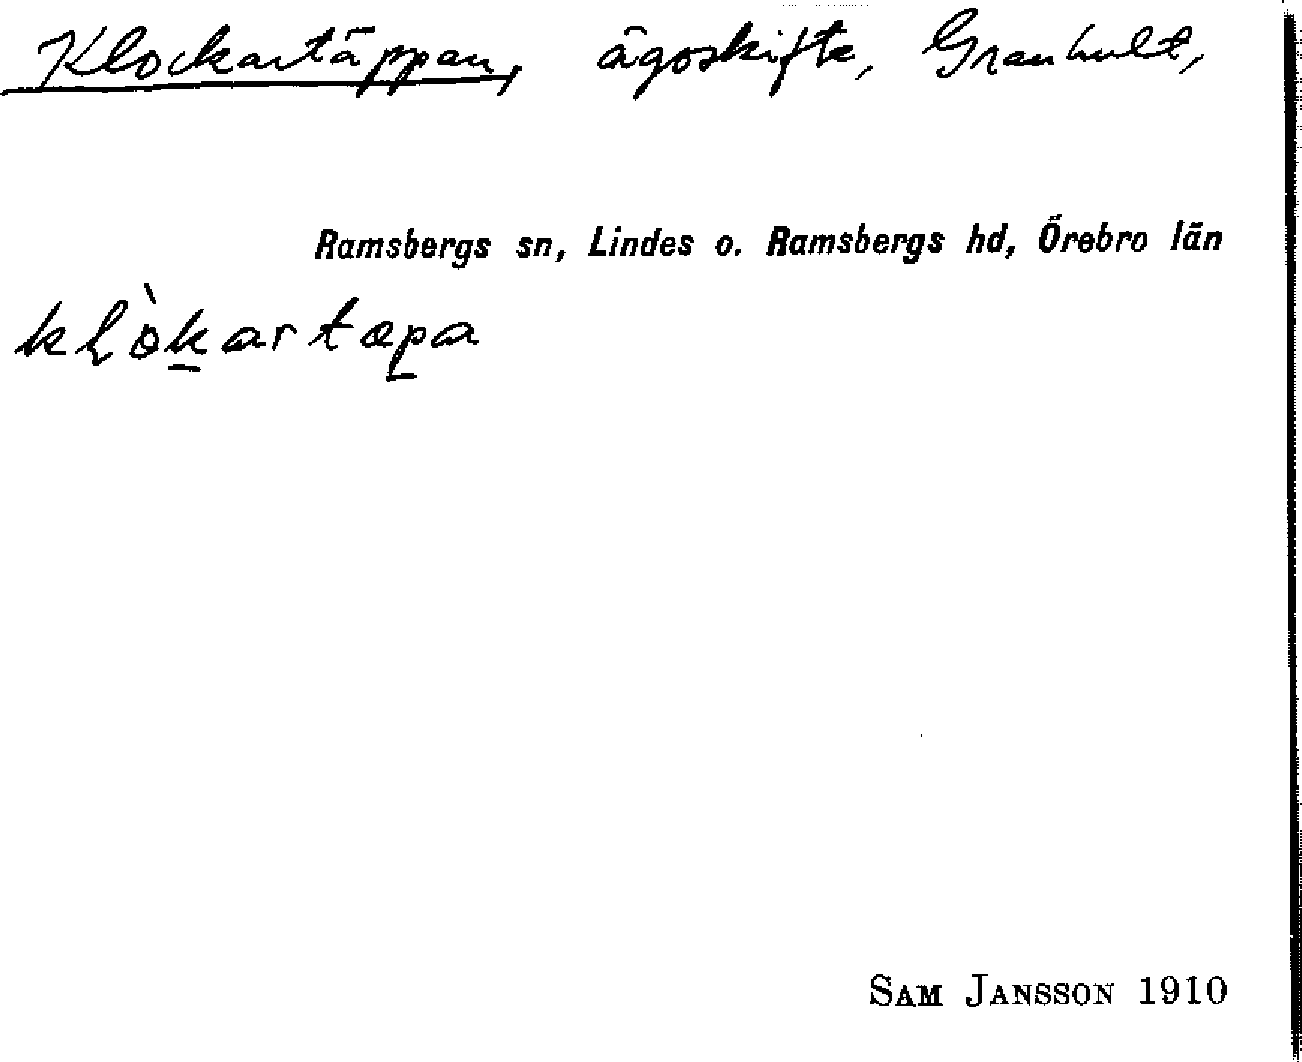 Klockartäppan, ägoskifte, Granhult,
Ramsbergs sn, Lindes o. Ramsbergs hd, Örebro län
kḷòk̲artæp̲a
SAM JANSSON 1910